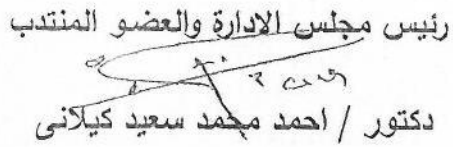 رئيس مجلس الادارة والعضو المنتدب
دكتور / احمد محمد سعيد كيلانى